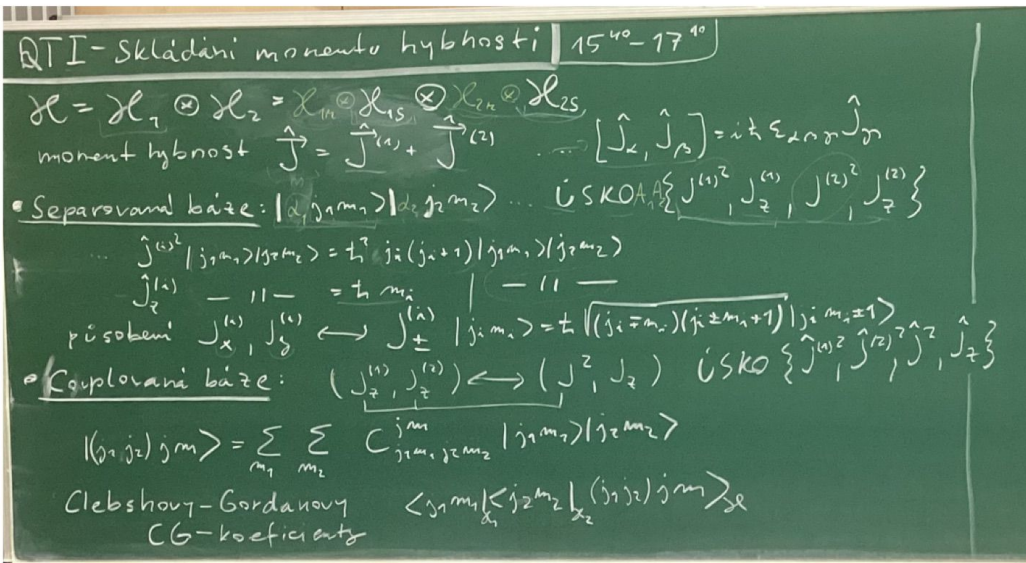 QTI - Skládání momentu hybnosti | 15⁴⁰ - 17¹⁰
ℋ = ℋ₁ ⊗ ℋ₂ = ℋ₁ᵣ ⊗ ℋ₁ₛ ⊗ ℋ₂ᵣ ⊗ ℋ₂ₛ
moment hybnost Ĵ⃗ = Ĵ⃗⁽¹⁾ + Ĵ⃗⁽²⁾ ... [Ĵ_α, Ĵ_β] = iħ ε_αβγ Ĵ_γ
• Separovaná báze: |α₁ j₁m₁>|α₂ j₂m₂> ... ÚSKO {J⁽¹⁾², J_z⁽¹⁾, J⁽²⁾², J_z⁽²⁾}
... Ĵ⁽ⁱ⁾² |j₁m₁>|j₂m₂> = ħ² jᵢ(jᵢ+1) |j₁m₁>|j₂m₂>
Ĵ_z⁽ⁱ⁾ — 11 — = ħ mᵢ | — 11 —
působení J_x⁽ⁱ⁾, J_y⁽ⁱ⁾ ↔ J_±⁽ⁱ⁾ |jᵢ mᵢ> = ħ √(jᵢ∓mᵢ)(jᵢ±mᵢ+1) |jᵢ mᵢ±1>
• Couplovaná báze: (J_z⁽¹⁾, J_z⁽²⁾) ↔ (J², J_z) ÚSKO {Ĵ⁽¹⁾², Ĵ⁽²⁾², Ĵ², Ĵ_z}
|(j₁ j₂) j m> = Σ_m₁ Σ_m₂ C^{jm}_{j₁m₁ j₂m₂} |j₁m₁>|j₂m₂>
Clebshovy-Gordanovy <j₁m₁|<j₂m₂|(j₁j₂) j m>_ℋ
CG-koeficienty